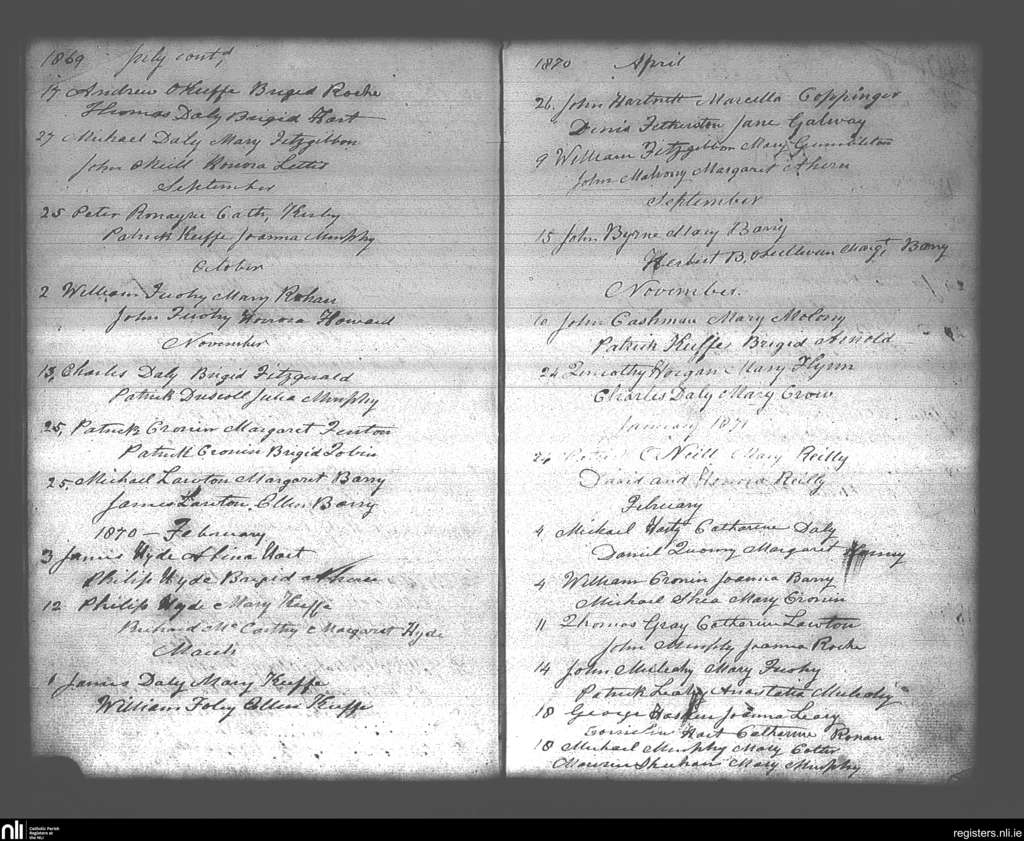 1869 July contd,
17 Andrew OKeeffe Brigid Roche
Thomas Daly Brigid Hart
27 Michael Daly Mary Fitzgibbon
John ONeill Honora
September
25 Peter Ronayne Cath, Kirby
Patrick Keeffe Joanna Murphy
October
2 William Tuohy Mary Rohan
John Tuohy Honora Howard
November
13, Charles Daly Brigid Fitzgerald
Patrick Driscoll Julia Murphy
25, Patrick Cronin Margaret Fenton
Patrick Cronin Brigid Tobin
25, Michael Lawton Margaret Barry
James Lawton, Ellen Barry
1870 – February
3 James Hyde Abina Hart
Philip Hyde Brigid Ahern
12 Philip Hyde Mary Keeffe
Richard McCarthy Margaret Hyde
March
1 James Daly Mary Keeffe
William Foley Ellen Keeffe
1870 April
26, John Hartnett Marcella Coppinger
Denis Fetherston Jane Galway
9 William Fitzgibbon Mary
John Mahony Margaret Ahern
September
15 John Byrne Mary Barry
Herbert B, OSullivan Margt Barry
November.
10 John Cashman Mary Molony
Patrick Keeffe Brigid Arnold
24 Timothy Horgan Mary Flynn
Charles Daly Mary Crow
January 1871
24 Patrick O'Neill Mary Reilly
David and Honora Reilly
February
4 Michael Catharine Daly
Daniel Margaret
4 William Cronin Joanna Barry
Michael Shea Mary Cronin
11 Thomas Gray Catharine Lawton
John Murphy Joanna Roche
14 John Mulcahy Mary Tuohy
Patrick Leahy Anastatia Mulcahy
18 George Joanna Leary
Cornelius Hart Catharine Ronan
18 Michael Murphy Mary Cotter
Maurice Sheehan Mary Murphy
nli Catholic Parish
Registers at
the NLI
registers.nli.ie